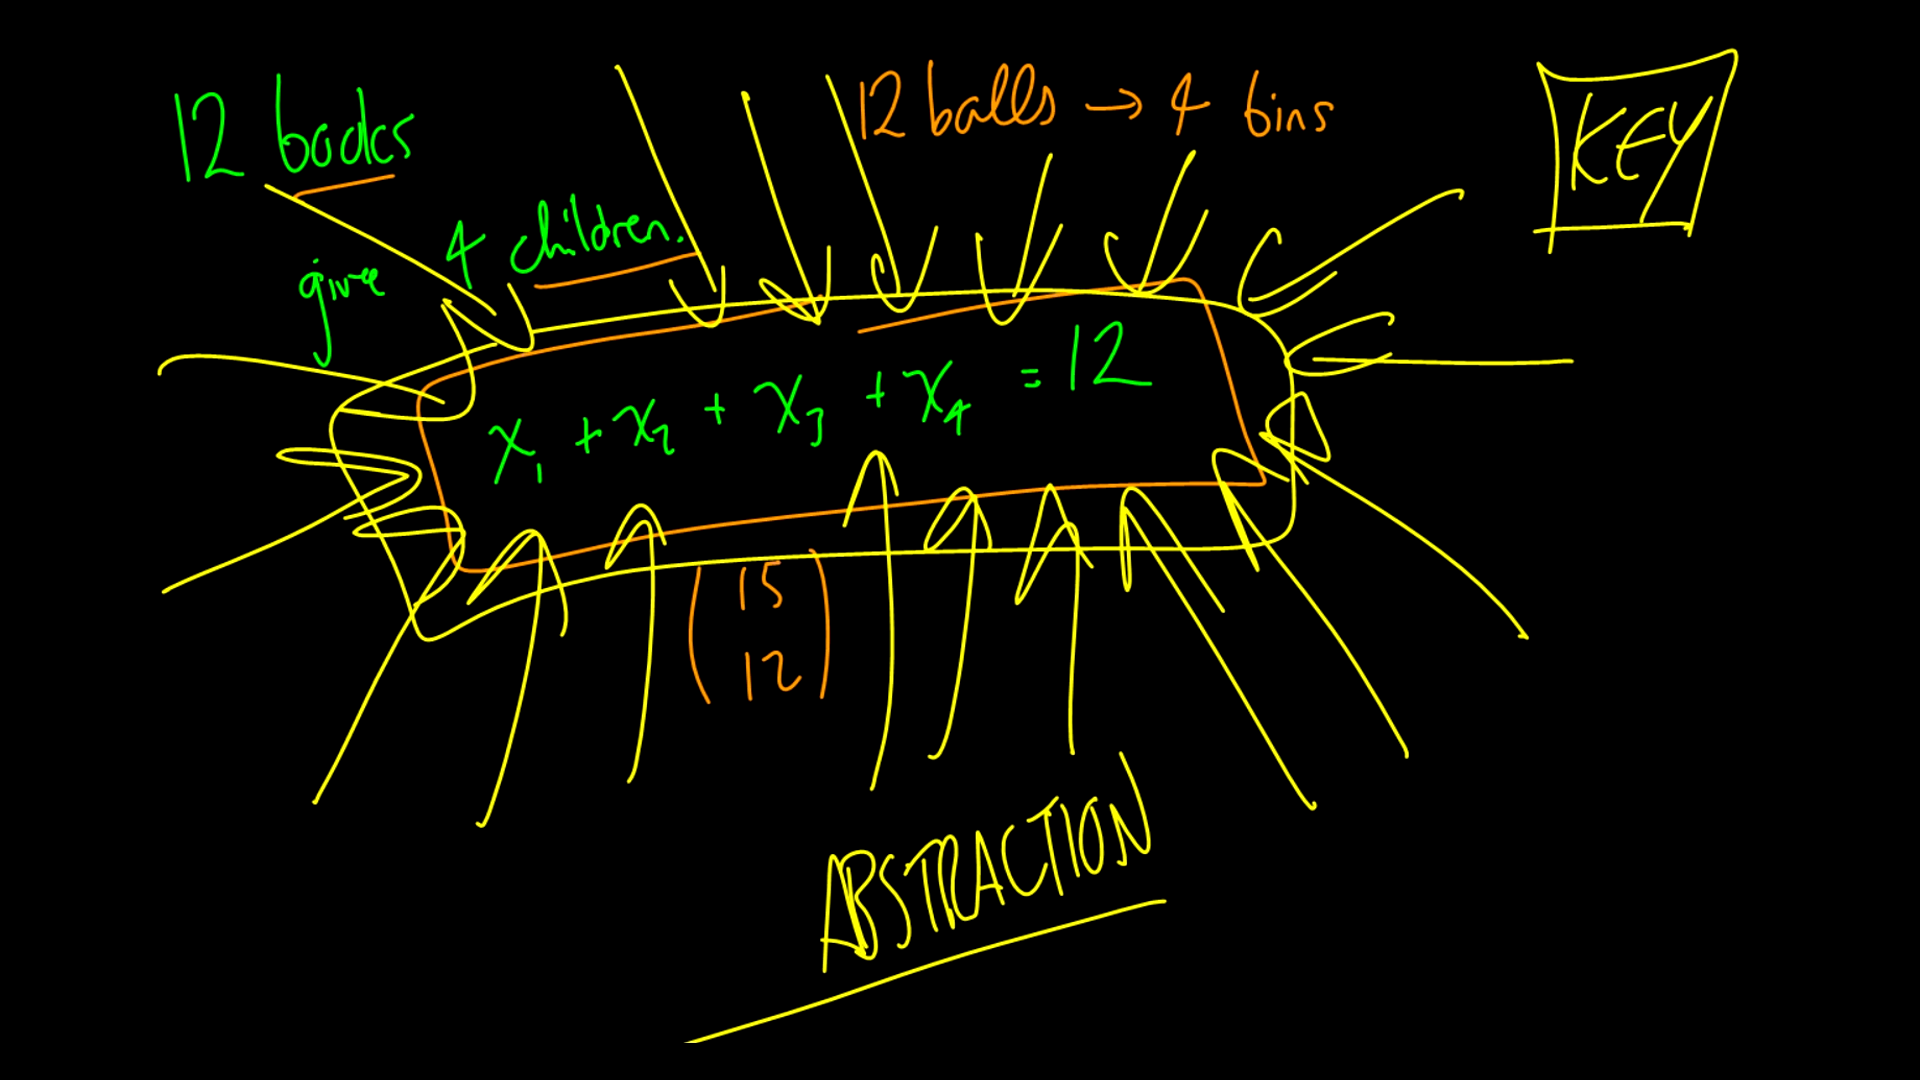 12 books
give 4 children.
12 balls → 4 bins
KEY
x₁ + x₂ + x₃ + x₄ = 12
(15
12)
ABSTRACTION